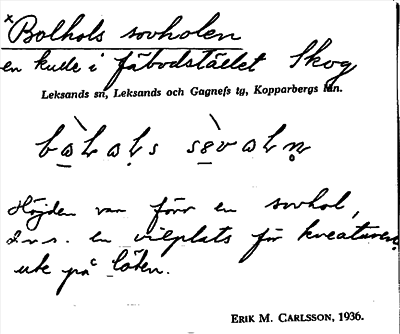 ×Bolhols sovholen
en kulle i fäbodstället Skog
Leksands sn, Leksands och Gagnefs tg, Kopparbergs län.
Höjden var förr en sovhol,
d.v.s. en vilplats för kreaturen
ute på löten.
ERIK M. CARLSSON, 1936.